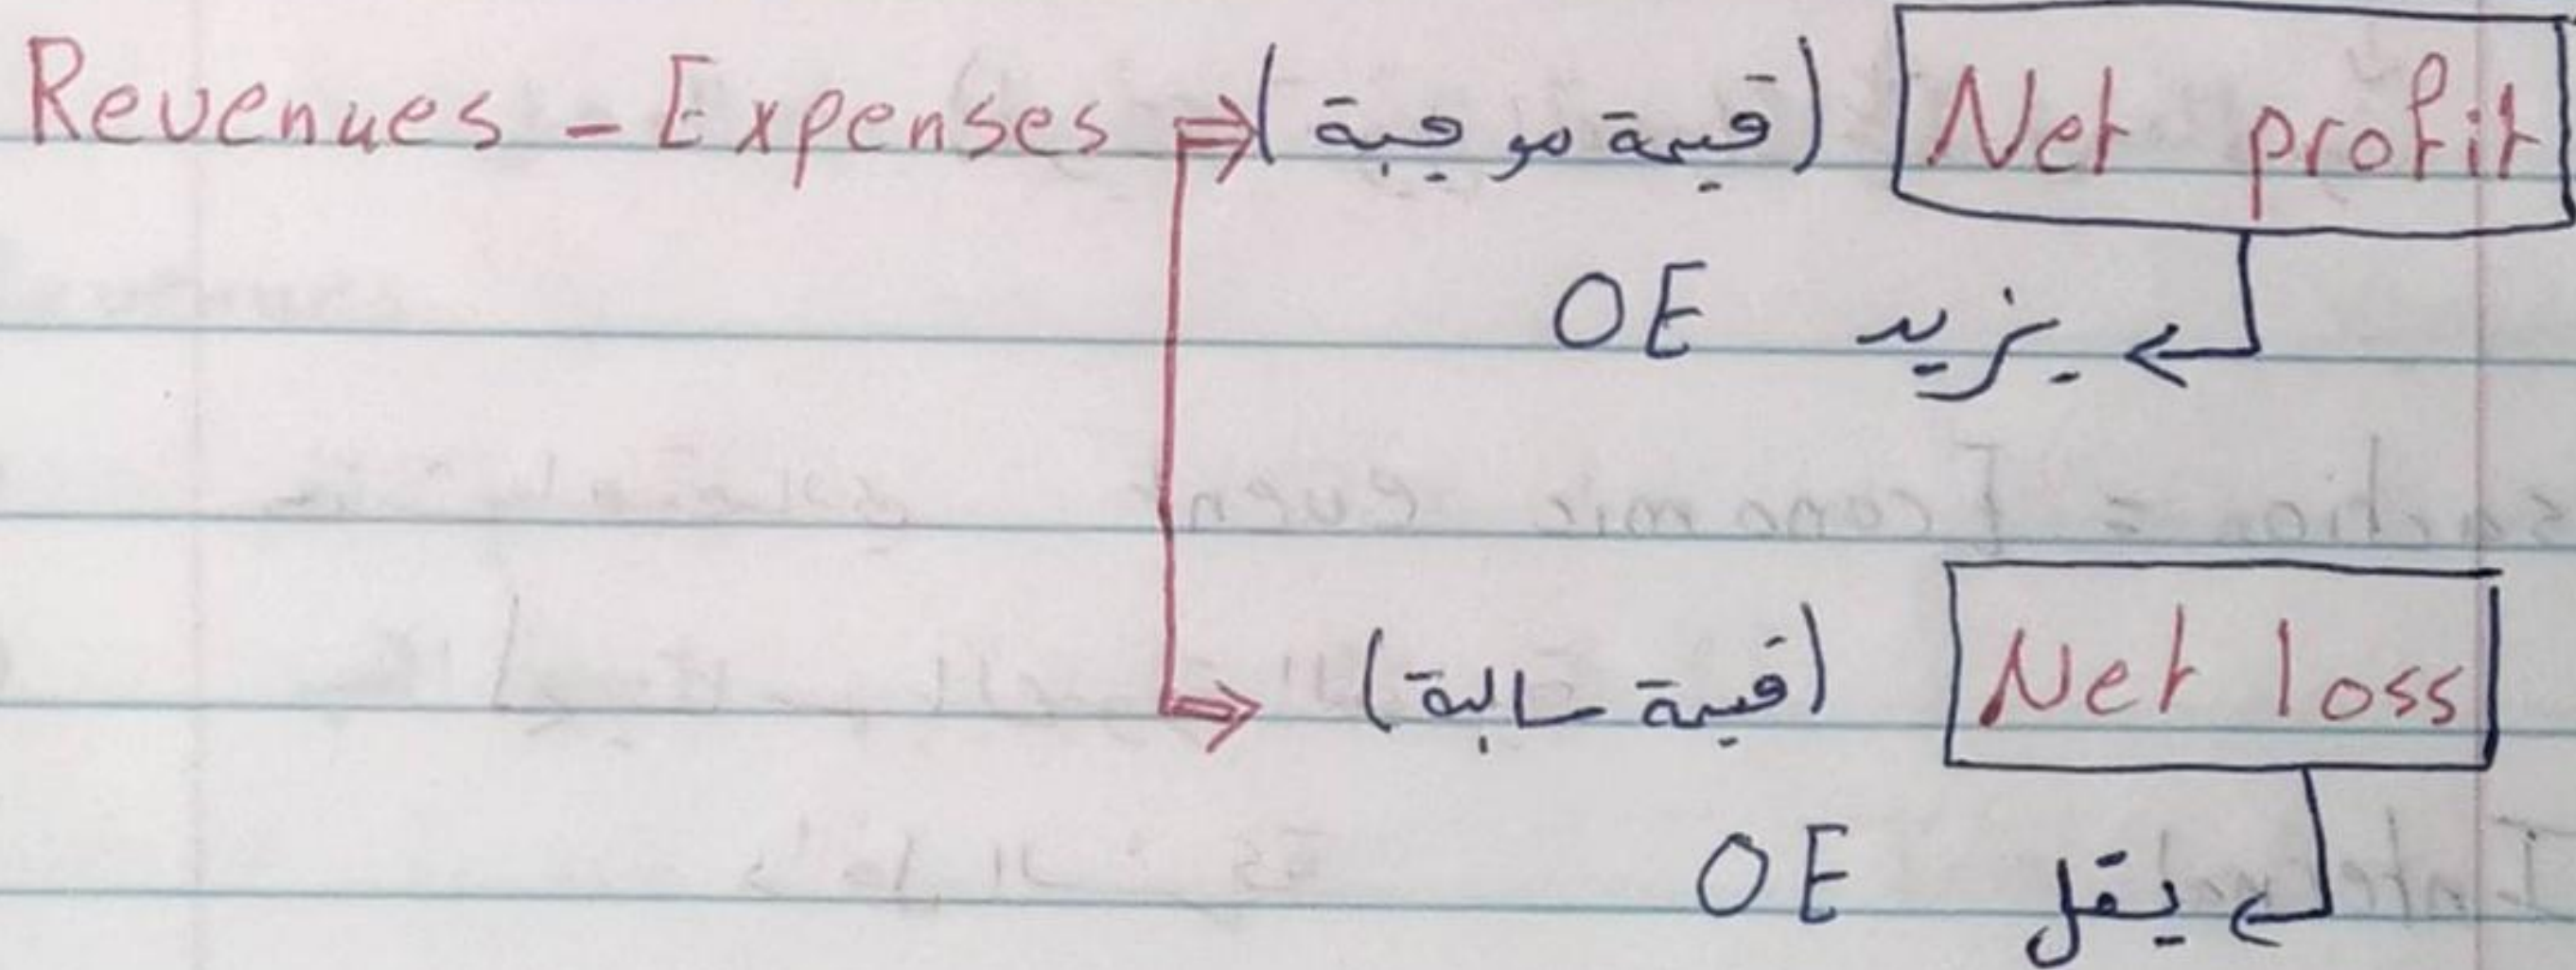 Revenues - Expenses ⇒ (قيمة موجبة) Net profit
يزيد OE
(قيمة سالبة) Net loss
يقل OE